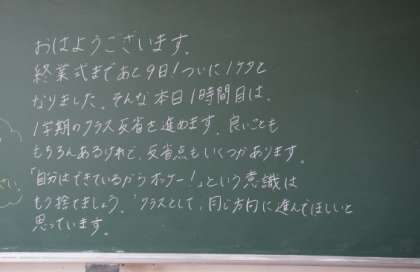 おはようございます。
終業式まであと9日！ついに1ケタと
なりました。そんな本日1時間目は、
1学期のクラス反省を進めます。良いことも
もちろんあるけれど、反省点もいくつかあります。
「自分はできているからオッケー！」という意識は
もう捨てましょう。クラスとして、同じ方向に進んでほしいと
思っています。